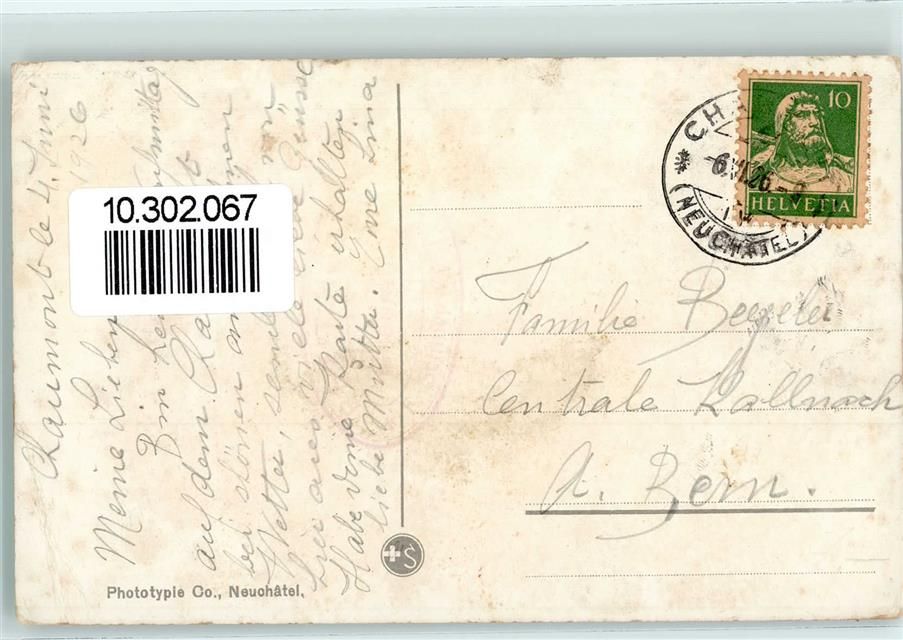 Chaumont le 4. Juni
1926
Meine Lieben
Bin
auf dem
bei schönem
Wetter, sende von
hier aus viele liebe Grüsse
Habe deine Karte erhalten
liebe Mutter. Eure Lina
10.302.067
Phototypie Co., Neuchâtel.
S
10
HELVETIA
CH
6.VI.26
(NEUCHÂTEL)
Familie
Centrale Kallnach
Kt. Bern.